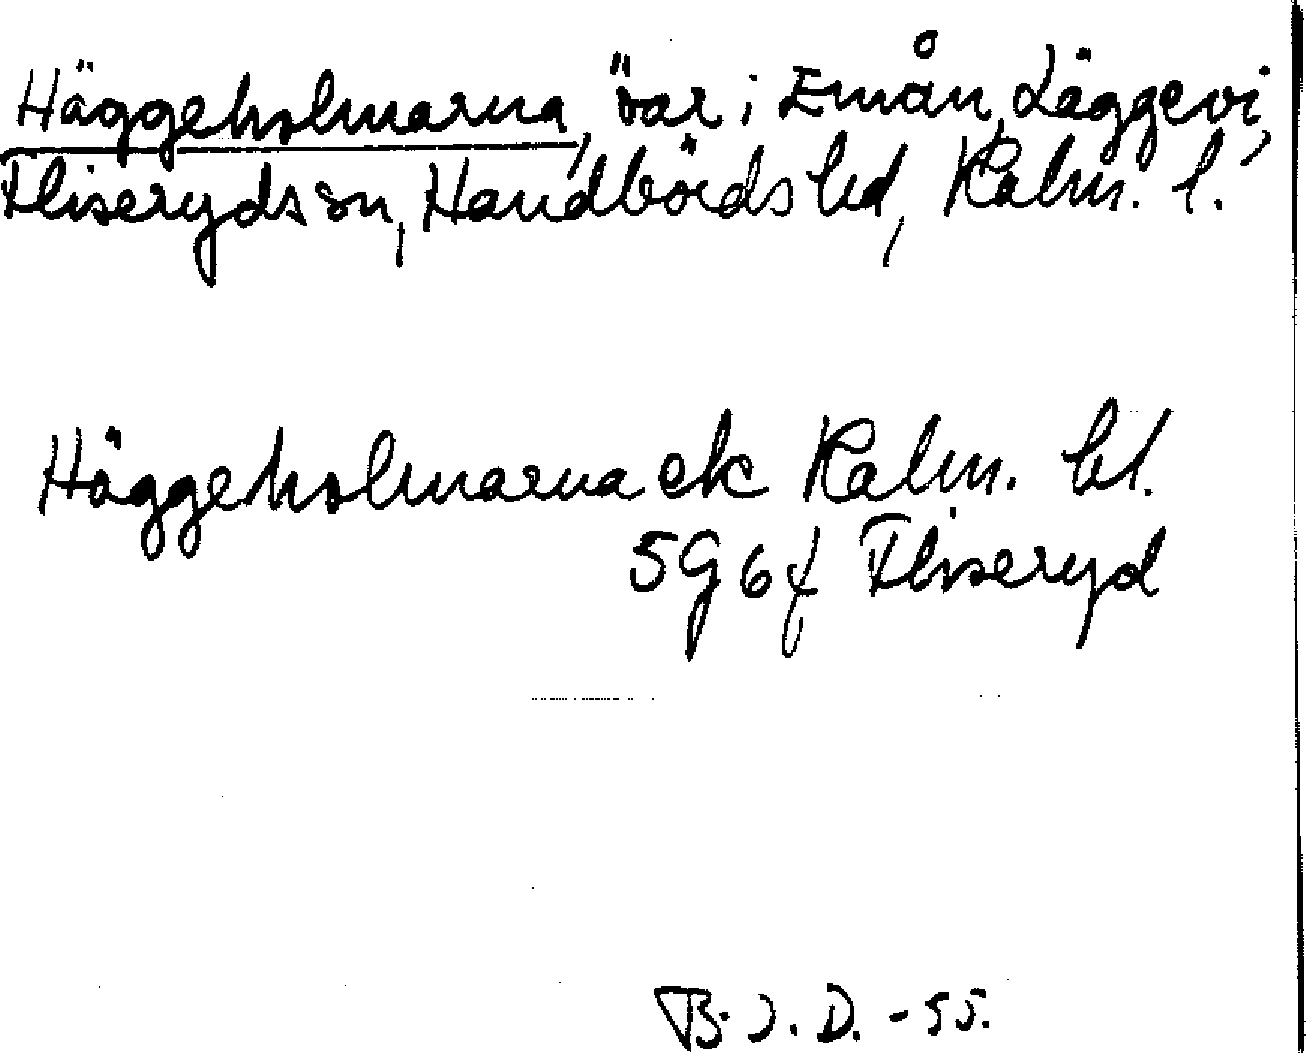 Häggeholmarna, öar i Emån, Läggevi,
Fliseryds sn, Handbörds hd, Kalm. l.
Häggeholmarna ek Kalm. bl.
5G6f Fliseryd
B. J. D. -55.